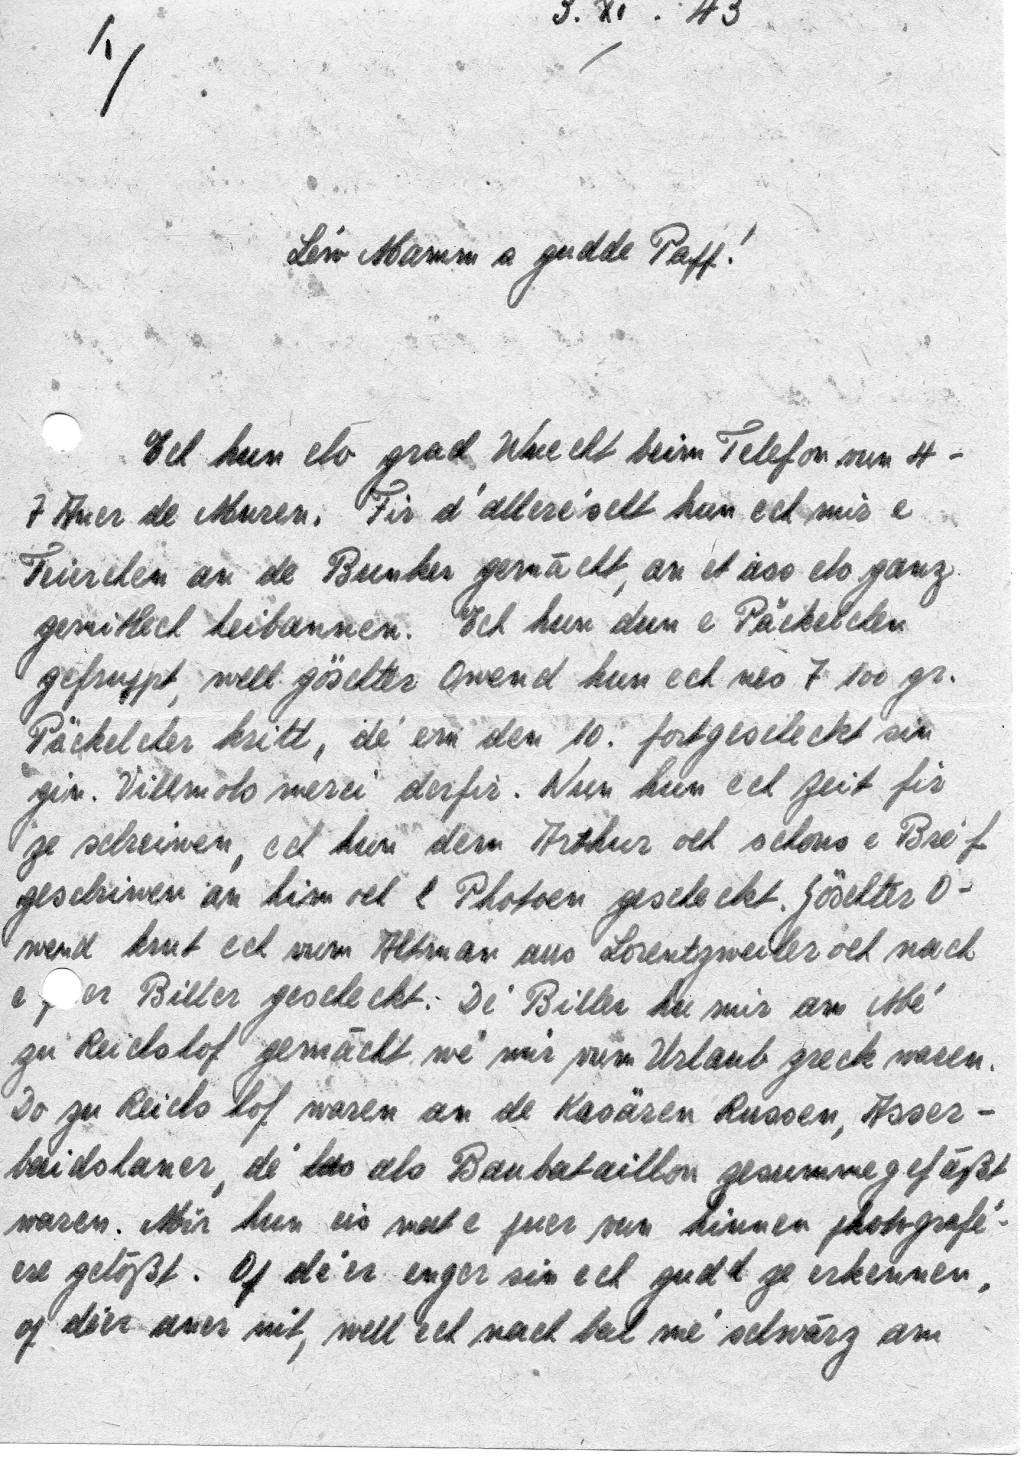 1./
3. XI. 43
Léiw Mamm a gudde Papp!
Ech hun elo grad Wuecht beim Telefon vun 4 -
7 Auer de Muren. Fir d'alleréischt hun ech mir e
Feierchen an de Bunker gemächt, an et ass elo ganz
gemittlech heibannen. Ech hun dun e Päckelchen
gefruppt, well göschter Owend hun ech nes 7 100 gr.
Päckelcher kritt, dé em den 10. fortgescheckt sin
gin. Villmols merci derfir. Nun hun ech Zeit fir
ze schreiwen, ech hun dem Arthur och schons e Bréf
geschriwen an him och 2 Photoen gescheckt. Göschter O-
wend krut ech vum Altman aus Lorentzweiler och nach
e puer Biller gescheckt. Dé Biller hu mir am Mé
zu Reichshof gemächt wé mir vum Urlaub zreck waren.
Do zu Reichshof waren an de Kasären Russen, Asser-
baidshaner, dé als Baubataillon zesummegefäßt
waren. Mir hun eis mat e puer vun hinnen photografé-
ere gelößt. Op déer enger sin ech gudd ze erkennen,
op déer aner nit, well ech nach bal mé schwärz am